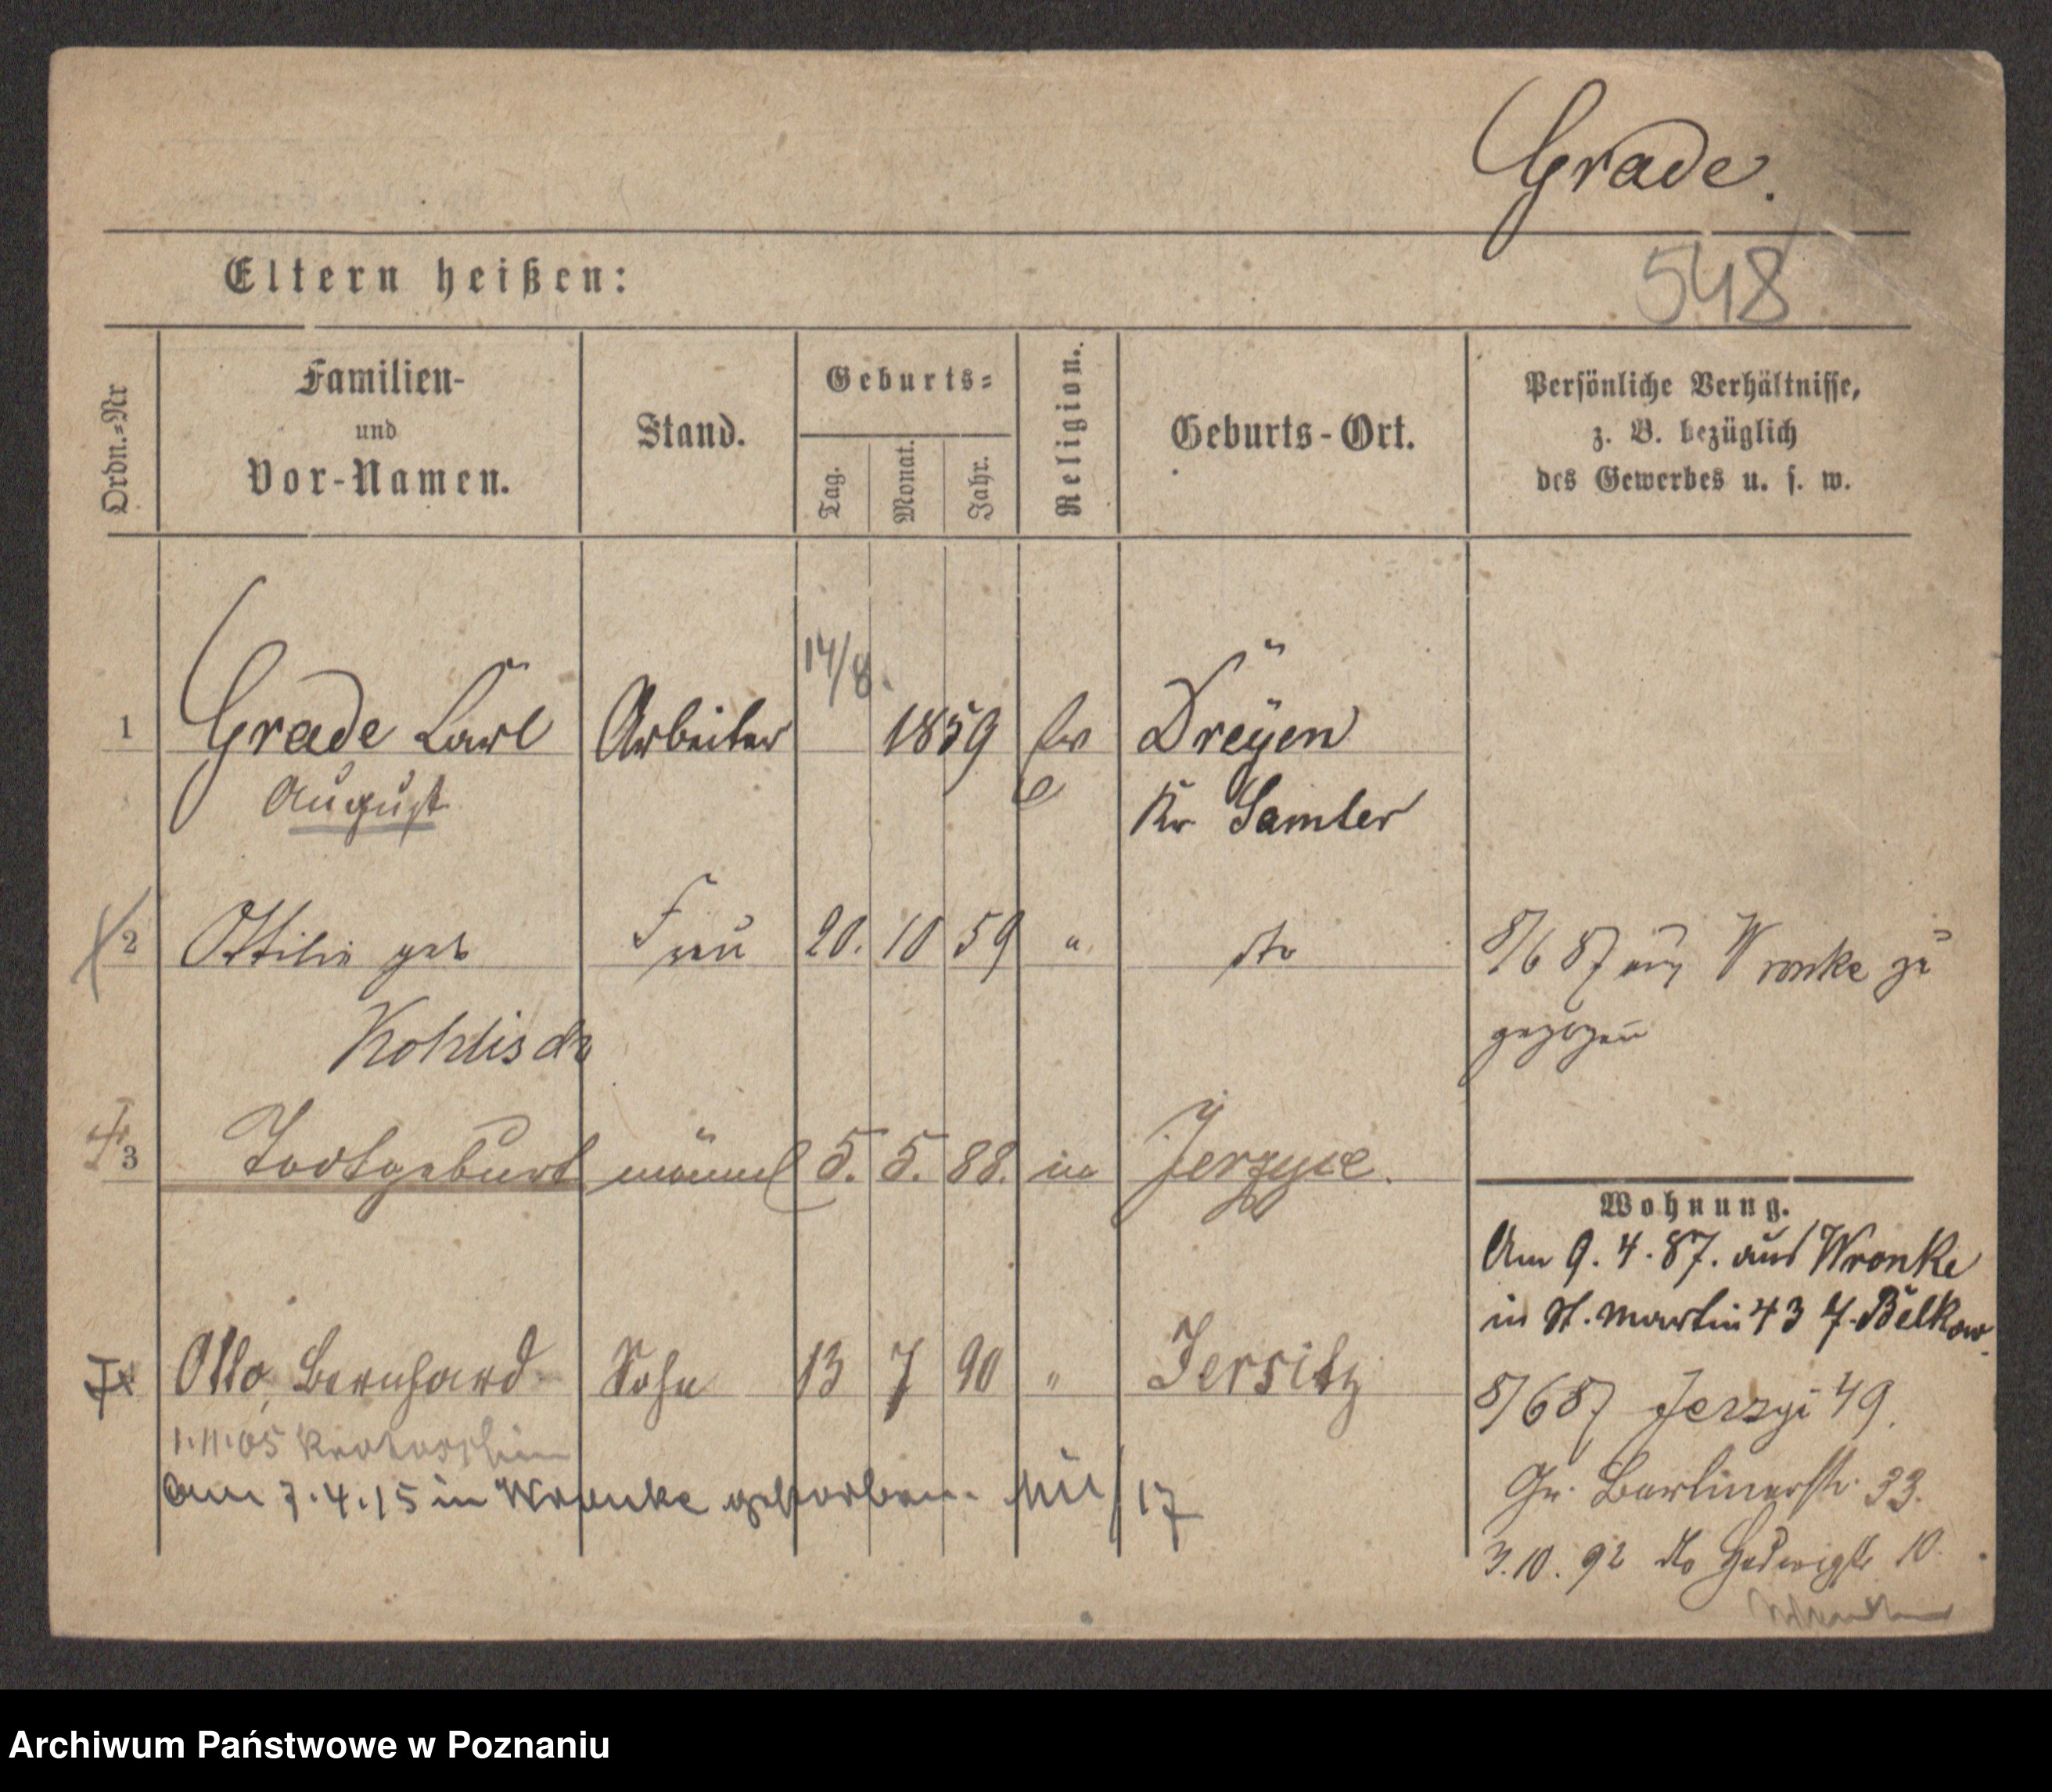 Grade.
548
Eltern heißen:
Ordn.=Nr
Familien-
und
Vor-Namen.
Stand.
Geburts=
Tag.
Monat.
Jahr.
Religion.
Geburts-Ort.
Persönliche Verhältnisse,
z. B. bezüglich
des Gewerbes u. s. w.
1 Grade Carl Arbeiter 14/8. 1859 Dreÿen
August Kr Samter
2 Ottilie geb Frau 20. 10 59 " dto 8/6 87 aus Wronke zu
Kohlisch gezogen
3 Todtgeburt männl 5. 5. 88. in Jerzyce.
Wohnung.
Am 9. 4. 87. aus Wronke
in St. Martin 43 Belkow.
Otto, Bernhard Sohn 13 7 90 " Jersitz
8/6 87 Jerzyi 49.
1.11.05 Krotoschin
am 7.4.15 in Wronke gestorben. 17
Gr. Berlinerstr. 33.
3.10.92 dto Hedwigstr 10.
Archiwum Państwowe w Poznaniu